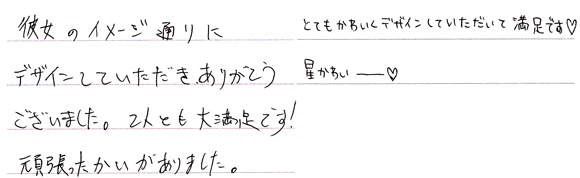 彼女のイメージ通りに
デザインしていただき、ありがとう
ございました。2人とも大満足です!
頑張ったかいがありました。
とてもかわいくデザインしていただいて満足です♡
星かわいー♡